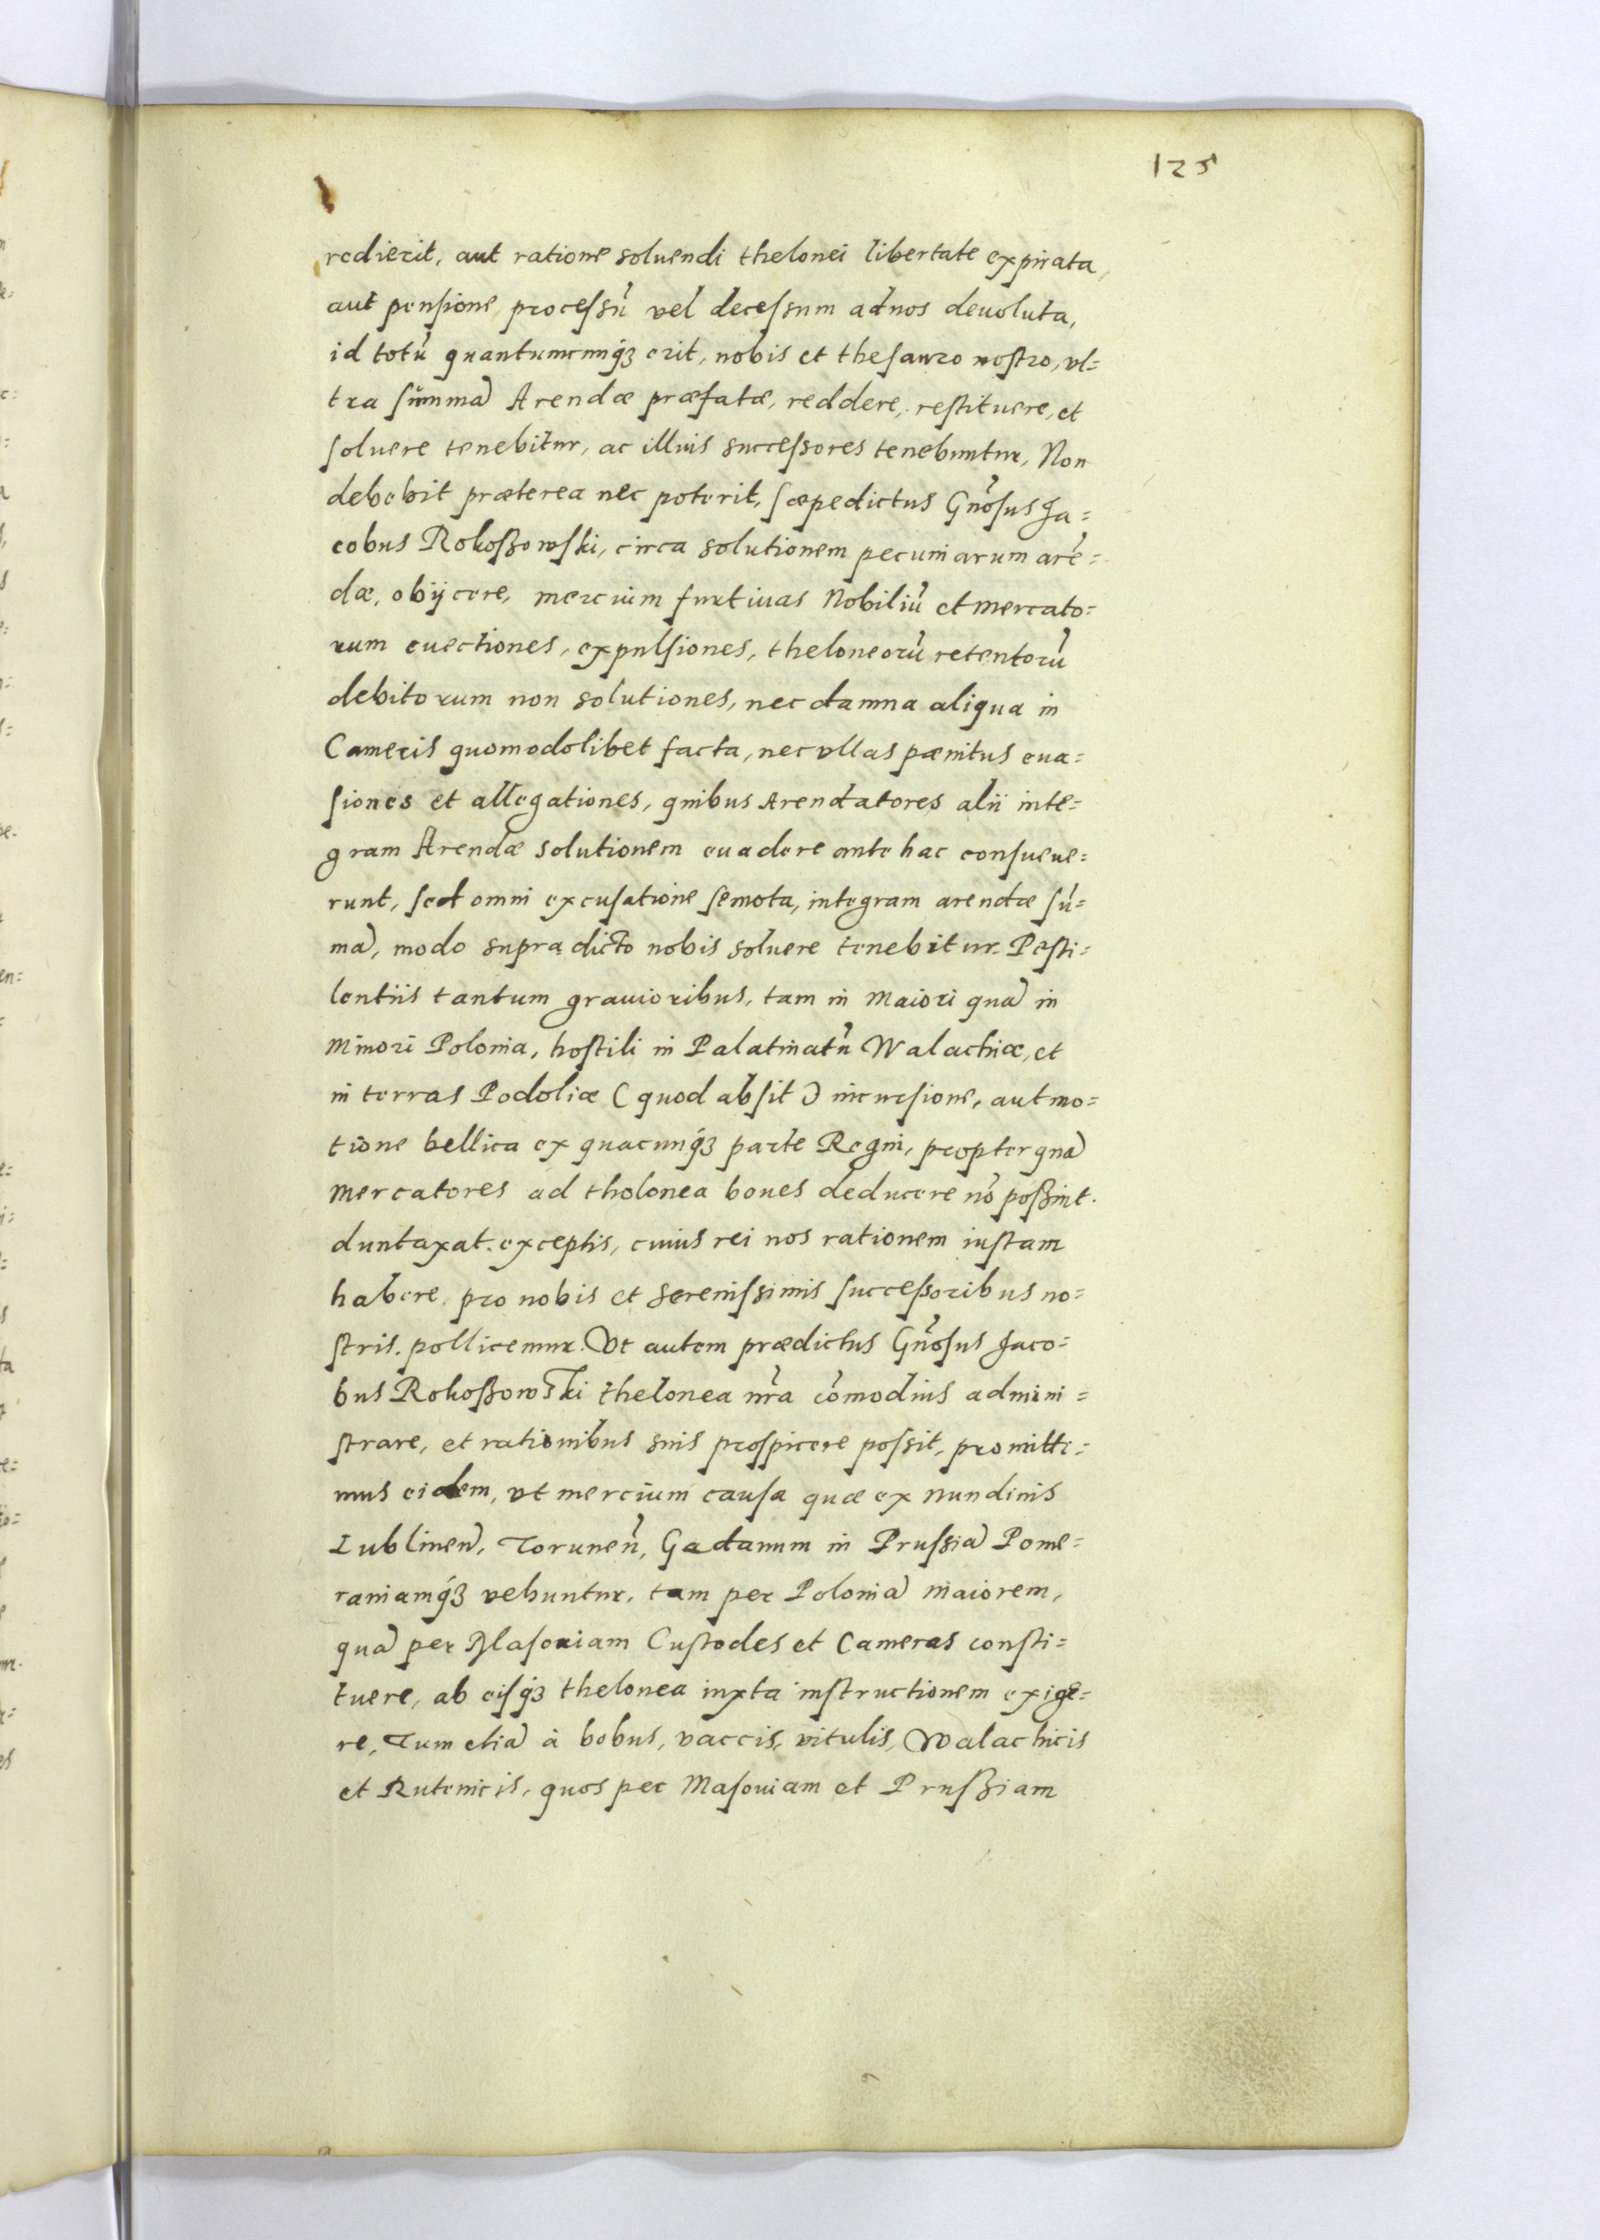 125
redierit, aut ratione soluendi thelonei libertate expirata,
aut pensione, processũ vel decessum ad nos deuoluta,
id totũ quantumcunqȝ erit, nobis et thesauro nostro, vl=
tra summã Arendæ præfatæ, reddere, restituere, et
soluere tenebitur, ac illius successores tenebuntur, Non
debebit præterea nec poterit, sæpedictus Gñosus Ja=
cobus Rokoßowski, circa solutionem pecuniarum arẽ=
dæ, obijcere, mercium furtiuas Nobiliũ et mercato=
rum euectiones, expulsiones, theloneorũ retentorũ
debitorum non solutiones, nec damna aliqua in
Cameris quomodolibet facta, nec vllas pænitus eua=
siones et allegationes, quibus Arendatores alii inte=
gram Arendæ solutionem euadere ante hac consueue=
runt, sed omni excusatione semota, integram arendæ sũ=
mã, modo supra dicto nobis soluere tenebitur. Pesti=
lentiis tantum grauioribus, tam in Maiori quã in
Minori Polonia, hostili in Palatinatũ Walachiæ, et
in terras Podoliæ (quod absit) incursione, aut mo=
tione bellica ex quacunqȝ parte Regni, propter quã
Mercatores ad thelonea boues deducere nõ poßint.
duntaxat exceptis, cuius rei nos rationem iustam
habere, pro nobis et Serenissimis successoribus no=
stris. pollicemur. Vt autem prædictus Gñosus Jaco=
bus Rokoßowski thelonea nr̃a cõmodius admini=
strare, et rationibus suis prospicere possit, promitti=
mus eidem, vt mercium causa quæ ex Nundinis
Lublineñ, Toruneñ, Gedanum in Prussiã Pome=
raniamqȝ vehuntur, tam per Poloniã maiorem,
quã per Masouiam Custodes et Cameras consti=
tuere, ab eisqȝ thelonea iuxta instructionem exige=
re, Tum etiã à bobus, vaccis, vitulis, Walachicis
et Rutenicis, quos per Masouiam et Prußiam